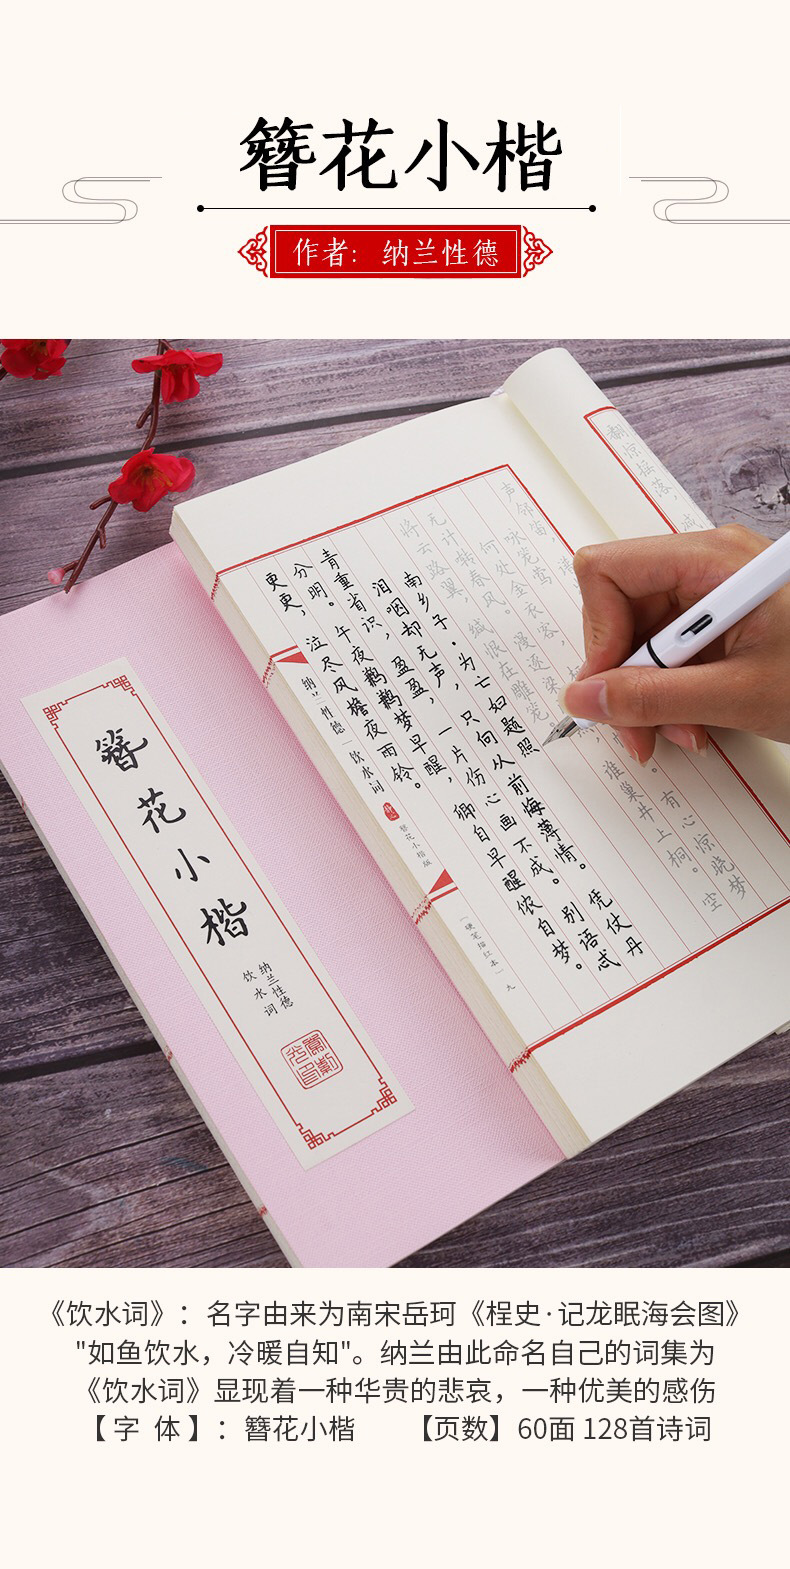 簪花小楷
作者：纳兰性德
翻惊摇落
声邻笛
咏笼莺
何处金衣客
转春风
漫逐梁
无计
缄恨在雕笼
将云路翼
谁巢井上桐。空
有心惊晓梦
南乡子·为亡妇题照
泪咽却无声，只向从前悔薄情。凭仗丹
青重省识，盈盈，一片伤心画不成。别语忒
分明。午夜鹣鹣梦早醒，卿自早醒侬自梦。
更更，泣尽风檐夜雨铃。
纳兰性德 饮水词
簪花小楷版
（硬笔描红本） 九
簪花小楷
纳兰性德
饮水词
《饮水词》：名字由来为南宋岳珂《桯史·记龙眠海会图》
"如鱼饮水，冷暖自知"。纳兰由此命名自己的词集为
《饮水词》显现着一种华贵的悲哀，一种优美的感伤
【 字 体 】：簪花小楷 【页数】60面 128首诗词